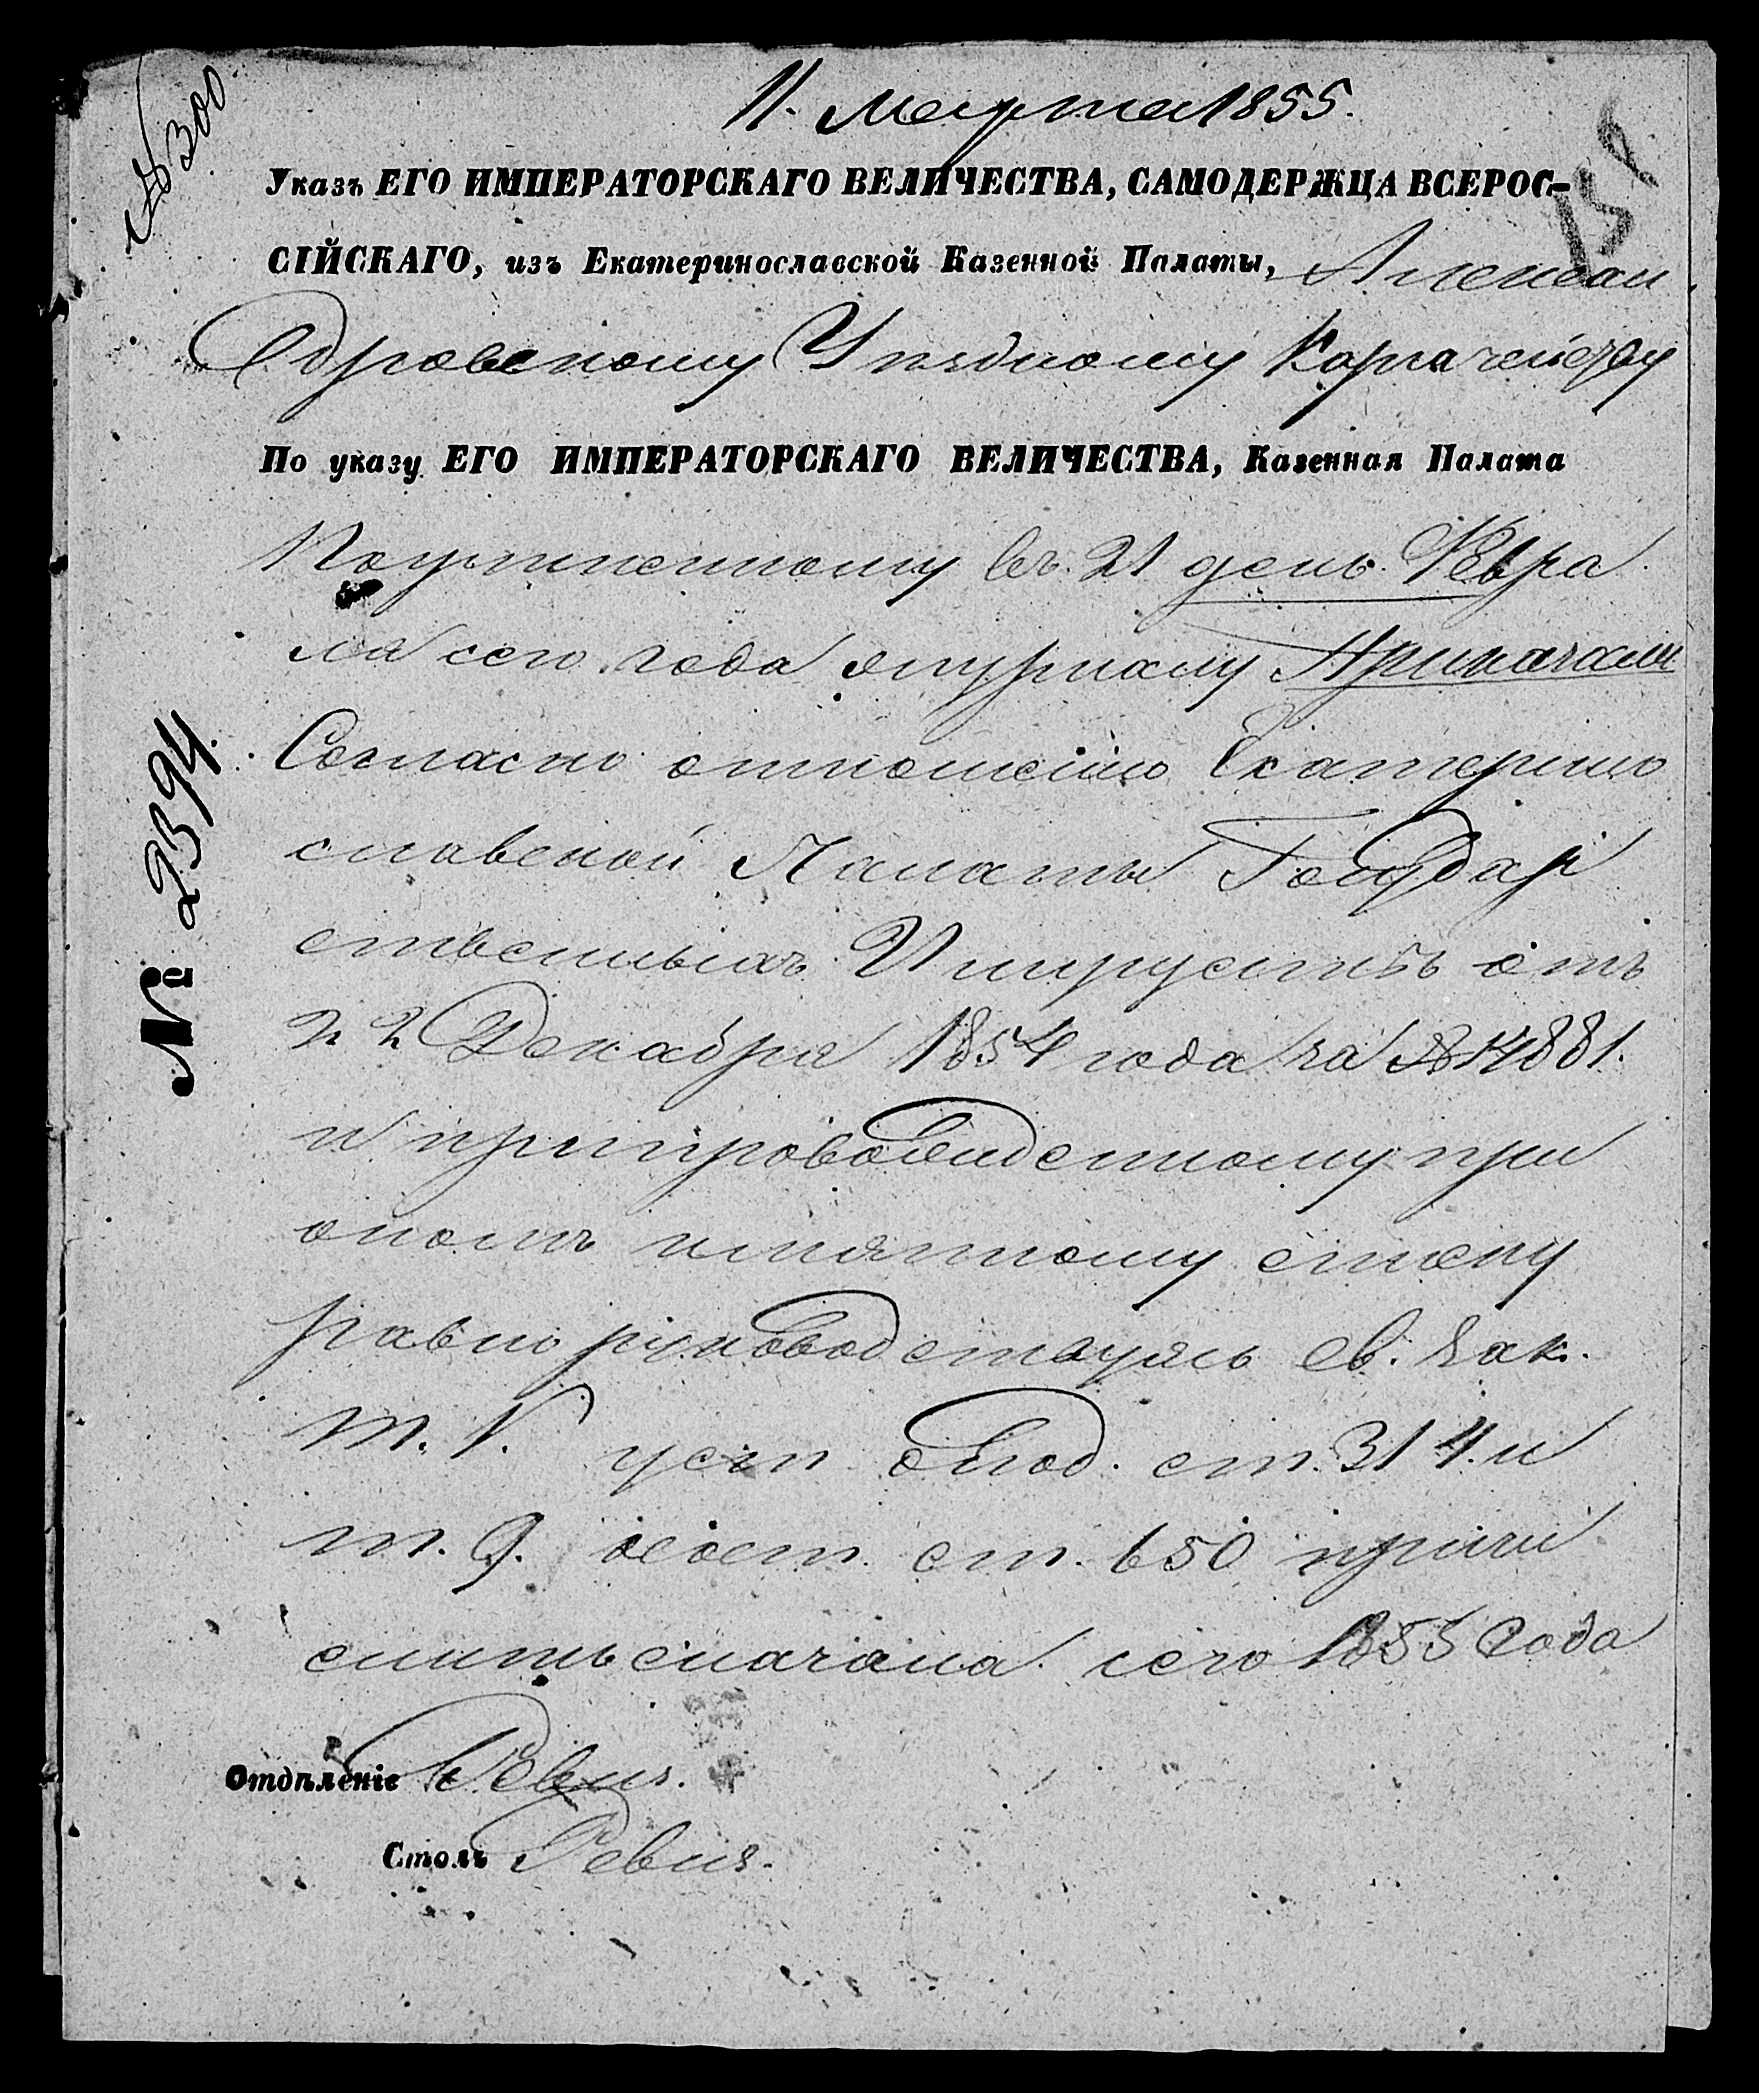 № 300
11. Марта 1855.
151
Указъ ЕГО ИМПЕРАТОРСКАГО ВЕЛИЧЕСТВА, САМОДЕРЖЦА ВСЕРОС-
СІЙСКАГО, изъ Екатеринославской Казенной Палаты, Алексан
Дровскому Уѣздному Казначейству
По указу ЕГО ИМПЕРАТОРСКАГО ВЕЛИЧЕСТВА, Казенная Палата
въ 21 день Февра
ля сего года журналу Приказали
Согласно отношенію Екатерино
славской Палаты Государ
ственныхъ Имуществъ отъ
22 Декабря 1854 года за № 14881.
и препровожденному при
ономъ имянному списку
равно руководствуясь св. Зак.
т. V. уст. о под. ст. 314. и
т. 9. о сост. ст. 650 причи
слить сначала сего 1855 года
№ 2394.
Отдѣленіе Ревиз.
Столъ Ревиз.